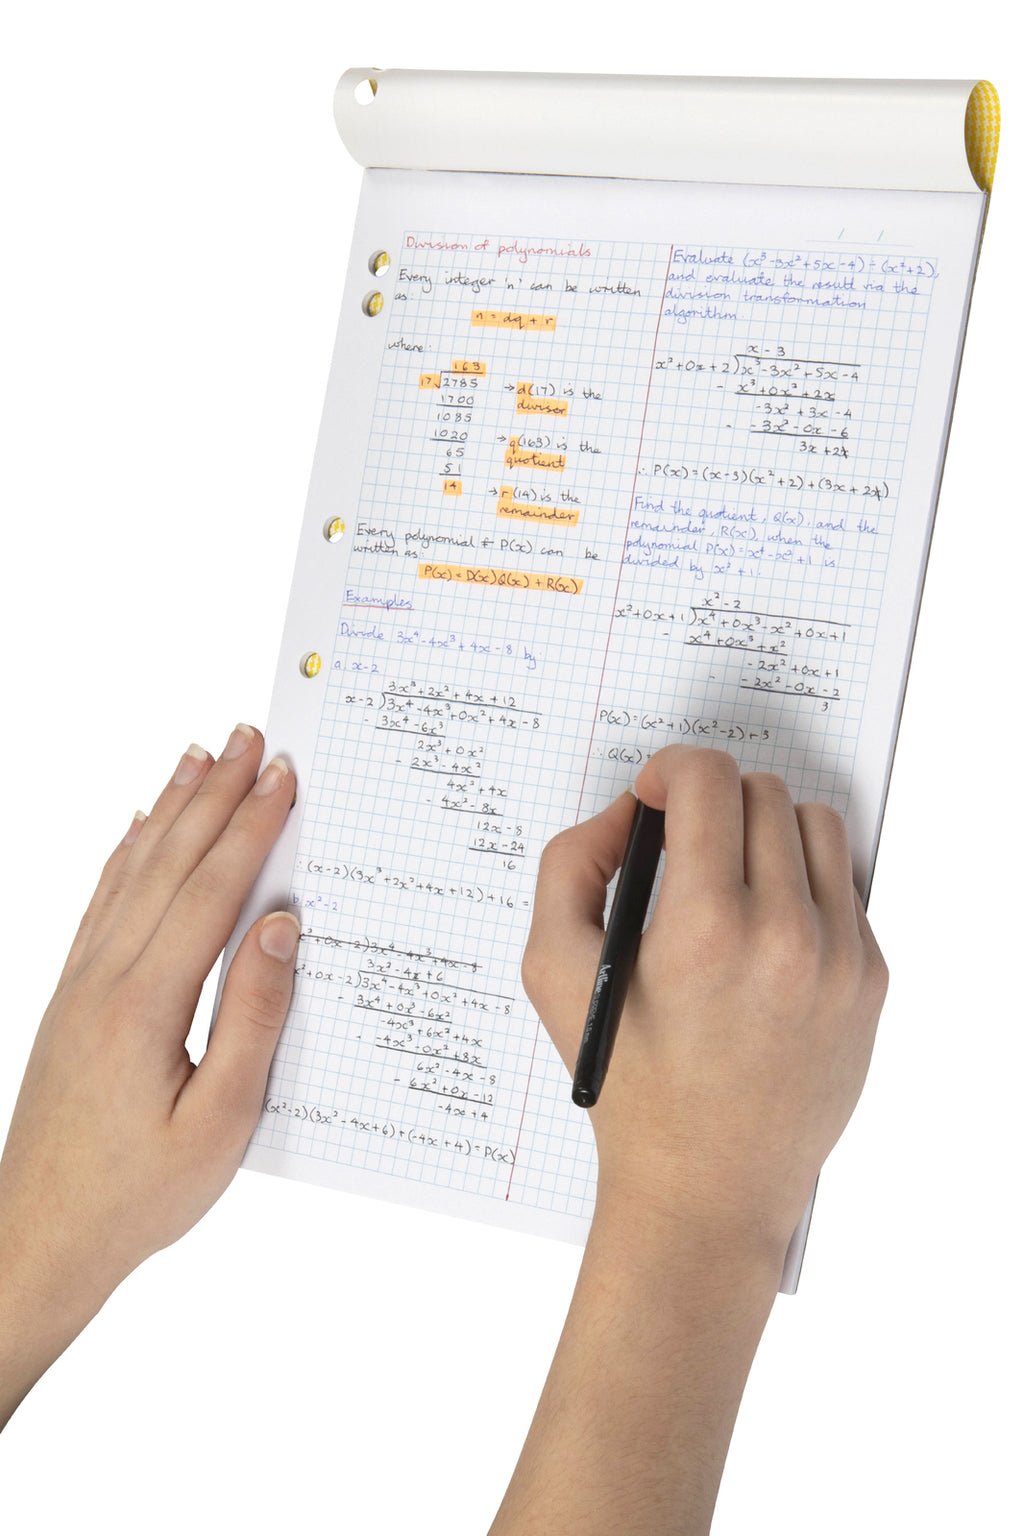 Division of polynomials
Every integer 'n' can be written
as:
n = dq + r
where:
163
17√2785
1700
1085
1020
65
51
14
→ d(17) is the
divisor
→ q(163) is the
quotient
→ r(14) is the
remainder
Every polynomial f P(x) can be
written as:
P(x) = D(x)Q(x) + R(x)
Examples
Divide 3x⁴-4x³+4x-8 by:
a. x-2
3x³+2x²+4x+12
x-2)3x⁴-4x³+0x²+4x-8
- 3x⁴-6x³
2x³+0x²
- 2x³-4x²
4x²+4x
- 4x²-8x
12x-8
12x-24
16
∴(x-2)(3x³+2x²+4x+12)+16 =
b x²-2
x²+0x-2)3x⁴-4x³+4x-8
3x²-4x+6
x²+0x-2)3x⁴-4x³+0x²+4x-8
- 3x⁴+0x³-6x²
-4x³+6x²+4x
- -4x³-0x²+8x
6x²-4x-8
- 6x²+0x-12
-4x+4
(x²-2)(3x²-4x+6)+(-4x+4)=P(x)
Evaluate (x³-3x²+5x-4)÷(x²+2),
and evaluate the result via the
division transformation
algorithm.
x-3
x²+0x+2)x³-3x²+5x-4
- x³+0x²+2x
-3x²+3x-4
- -3x²-0x-6
3x+2
∴ P(x)=(x-3)(x²+2)+(3x+2)
Find the quotient, Q(x), and the
remainder, R(x), when the
polynomial P(x)=x⁴-x²+1 is
divided by x²+1.
x²-2
x²+0x+1)x⁴+0x³-x²+0x+1
- x⁴+0x³+x²
-2x²+0x+1
- -2x²-0x-2
3
P(x)=(x²+1)(x²-2)+3
∴ Q(x)=
Artline